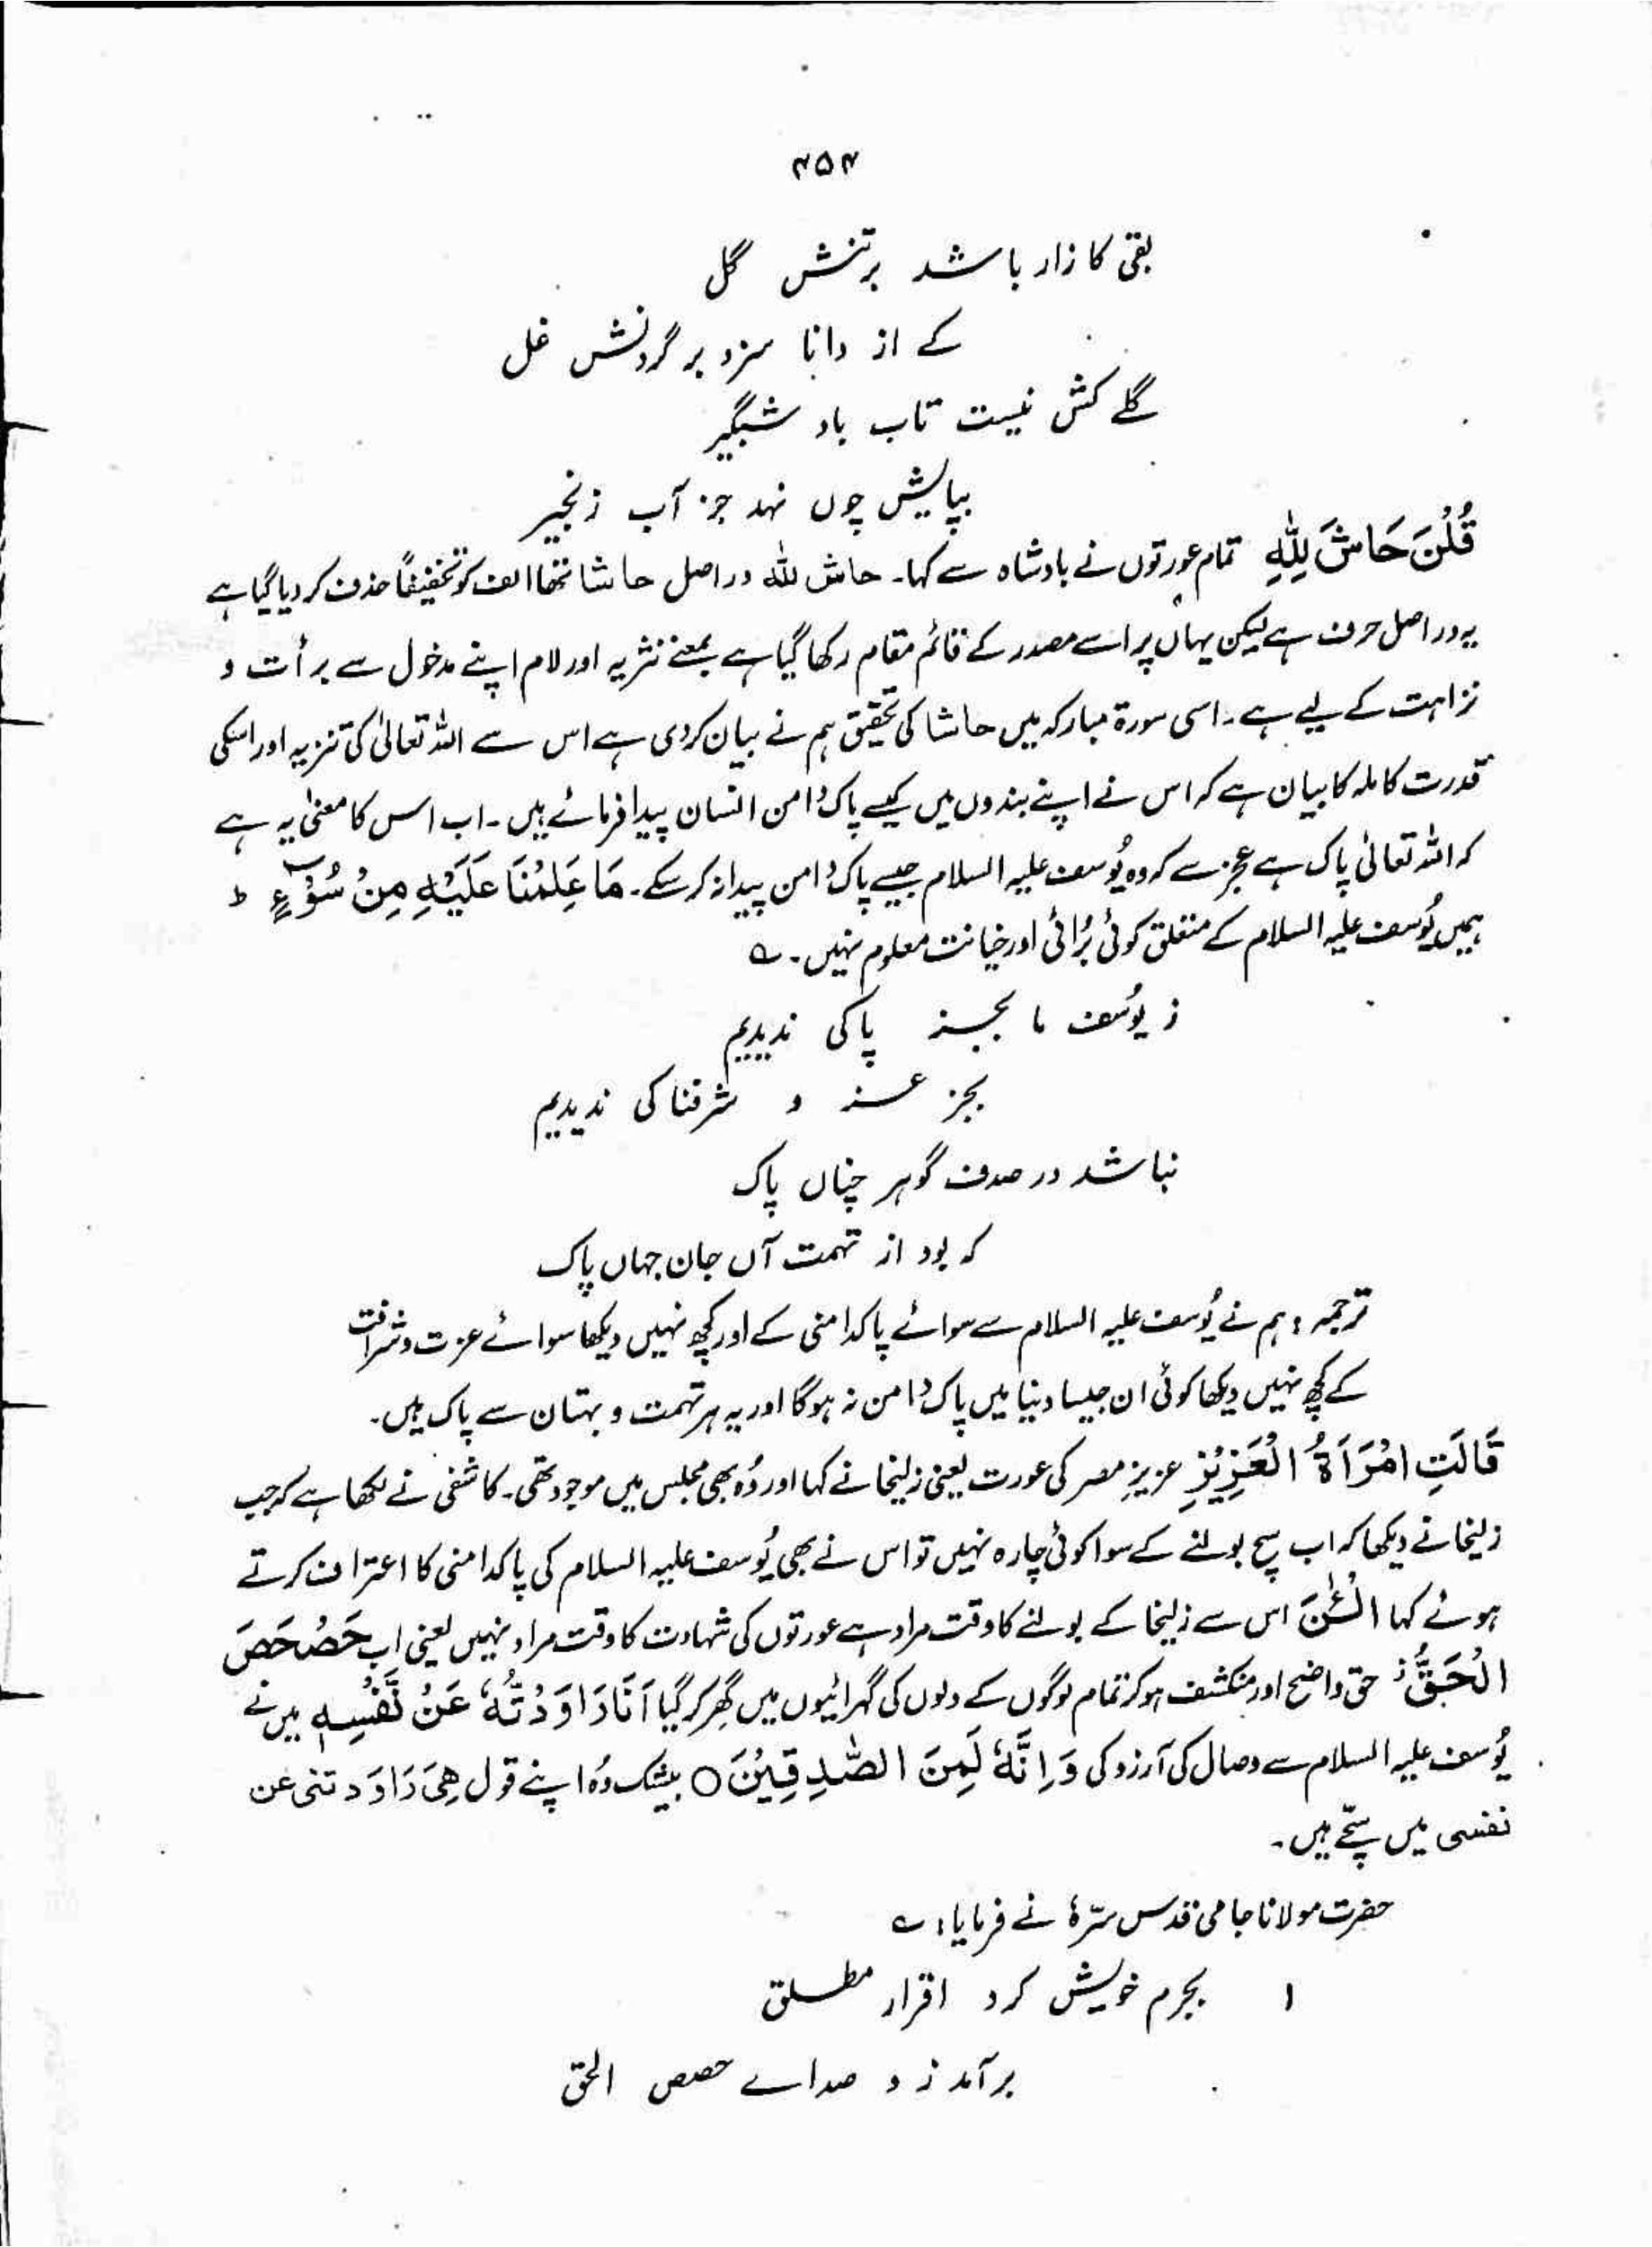 ۴۵۴
بقی کا زار باشد برتنش گل
کے از دانا سزد بر گردنش غل
گلے کش نیست تاب باد شبگیر
بپایش چوں نہد جز آب زنجیر
قُلْنَ حَاشَ لِلّٰهِ تمام عورتوں نے بادشاہ سے کہا۔ حاش للہ دراصل حاشا تھا الف کو تخفیفاً حذف کر دیا گیا ہے
یہ دراصل حرف ہے لیکن یہاں پر اسے مصدر کے قائم مقام رکھا گیا ہے بمعنے نثریہ اور لام اپنے مدخول سے برأت و
نزاہت کے لیے ہے۔ اسی سورۃ مبارکہ میں حاشا کی تحقیق ہم نے بیان کر دی ہے اس سے اللہ تعالیٰ کی تنزیہ اور اسکی
قدرت کاملہ کا بیان ہے کہ اس نے اپنے بندوں میں کیسے پاک دامن انسان پیدا فرمائے ہیں۔ اب اس کا معنیٰ یہ ہے
کہ اللہ تعالیٰ پاک ہے عجز سے کہ وہ یُوسف علیہ السلام جیسے پاک دامن پیدا نہ کر سکے۔ مَا عَلِمْنَا عَلَيْهِ مِنْ سُوْٓءٍ ط
ہمیں یُوسف علیہ السلام کے متعلق کوئی بُرائی اور خیانت معلوم نہیں۔ ؎
ز یوُسف ما بجز پاکی ندیدیم
بجز عز و شرفنا کی ندیدیم
نباشد در صدف گوہر چناں پاک
کہ بود از تہمت آں جان جہاں پاک
ترجمہ : ہم نے یُوسف علیہ السلام سے سوائے پاکدامنی کے اور کچھ نہیں دیکھا سوائے عزت و شرافت
کے کچھ نہیں دیکھا کوئی ان جیسا دنیا میں پاک دامن نہ ہوگا اور یہ ہر تہمت و بہتان سے پاک ہیں۔
قَالَتِ امْرَاَةُ الْعَزِيْزِ عزیزِ مصر کی عورت یعنی زلیخا نے کہا اور وُہ بھی مجلس میں موجود تھی۔ کاشفی نے لکھا ہے کہ جب
زلیخا نے دیکھا کہ اب سچ بولنے کے سوا کوئی چارہ نہیں تو اس نے بھی یُوسف علیہ السلام کی پاکدامنی کا اعتراف کرتے
ہوئے کہا الْـٰٔنَ اس سے زلیخا کے بولنے کا وقت مراد ہے عورتوں کی شہادت کا وقت مراد نہیں یعنی اب حَصْحَصَ
الْحَقُّ ز حق واضح اور منکشف ہو کر تمام لوگوں کے دلوں کی گہرائیوں میں گھر کر گیا اَنَا رَاوَدْتُّهٗ عَنْ نَّفْسِهٖ میں نے
یُوسف علیہ السلام سے وصال کی آرزو کی وَاِنَّهٗ لَمِنَ الصّٰدِقِيْنَ ○ بیشک وُہ اپنے قول هِیَ رَاوَدتنی عن
نفسی میں سچّے ہیں۔
حضرت مولانا جامی قدس سرّہٗ نے فرمایا: ؎
۱ بجرم خویش کرد اقرار مطلق
برآمد ز و صدائے حصص الحق